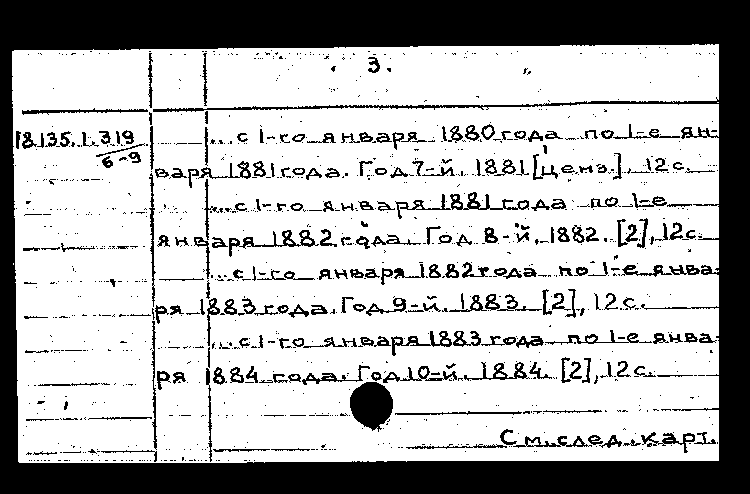 3.
18.135.1.319
6-9
...с 1-го января 1880 года по 1-е ян-
варя 1881 года. Год 7-й. 1881 [ценз.], 12 с.
...с 1-го января 1881 года по 1-е
января 1882 года. Год 8-й. 1882. [2], 12 с.
...с 1-го января 1882 года по 1-е янва-
ря 1883 года. Год 9-й. 1883. [2], 12 с.
...с 1-го января 1883 года по 1-е янва-
ря 1884 года. Год 10-й. 1884. [2], 12 с.
См. след. карт.